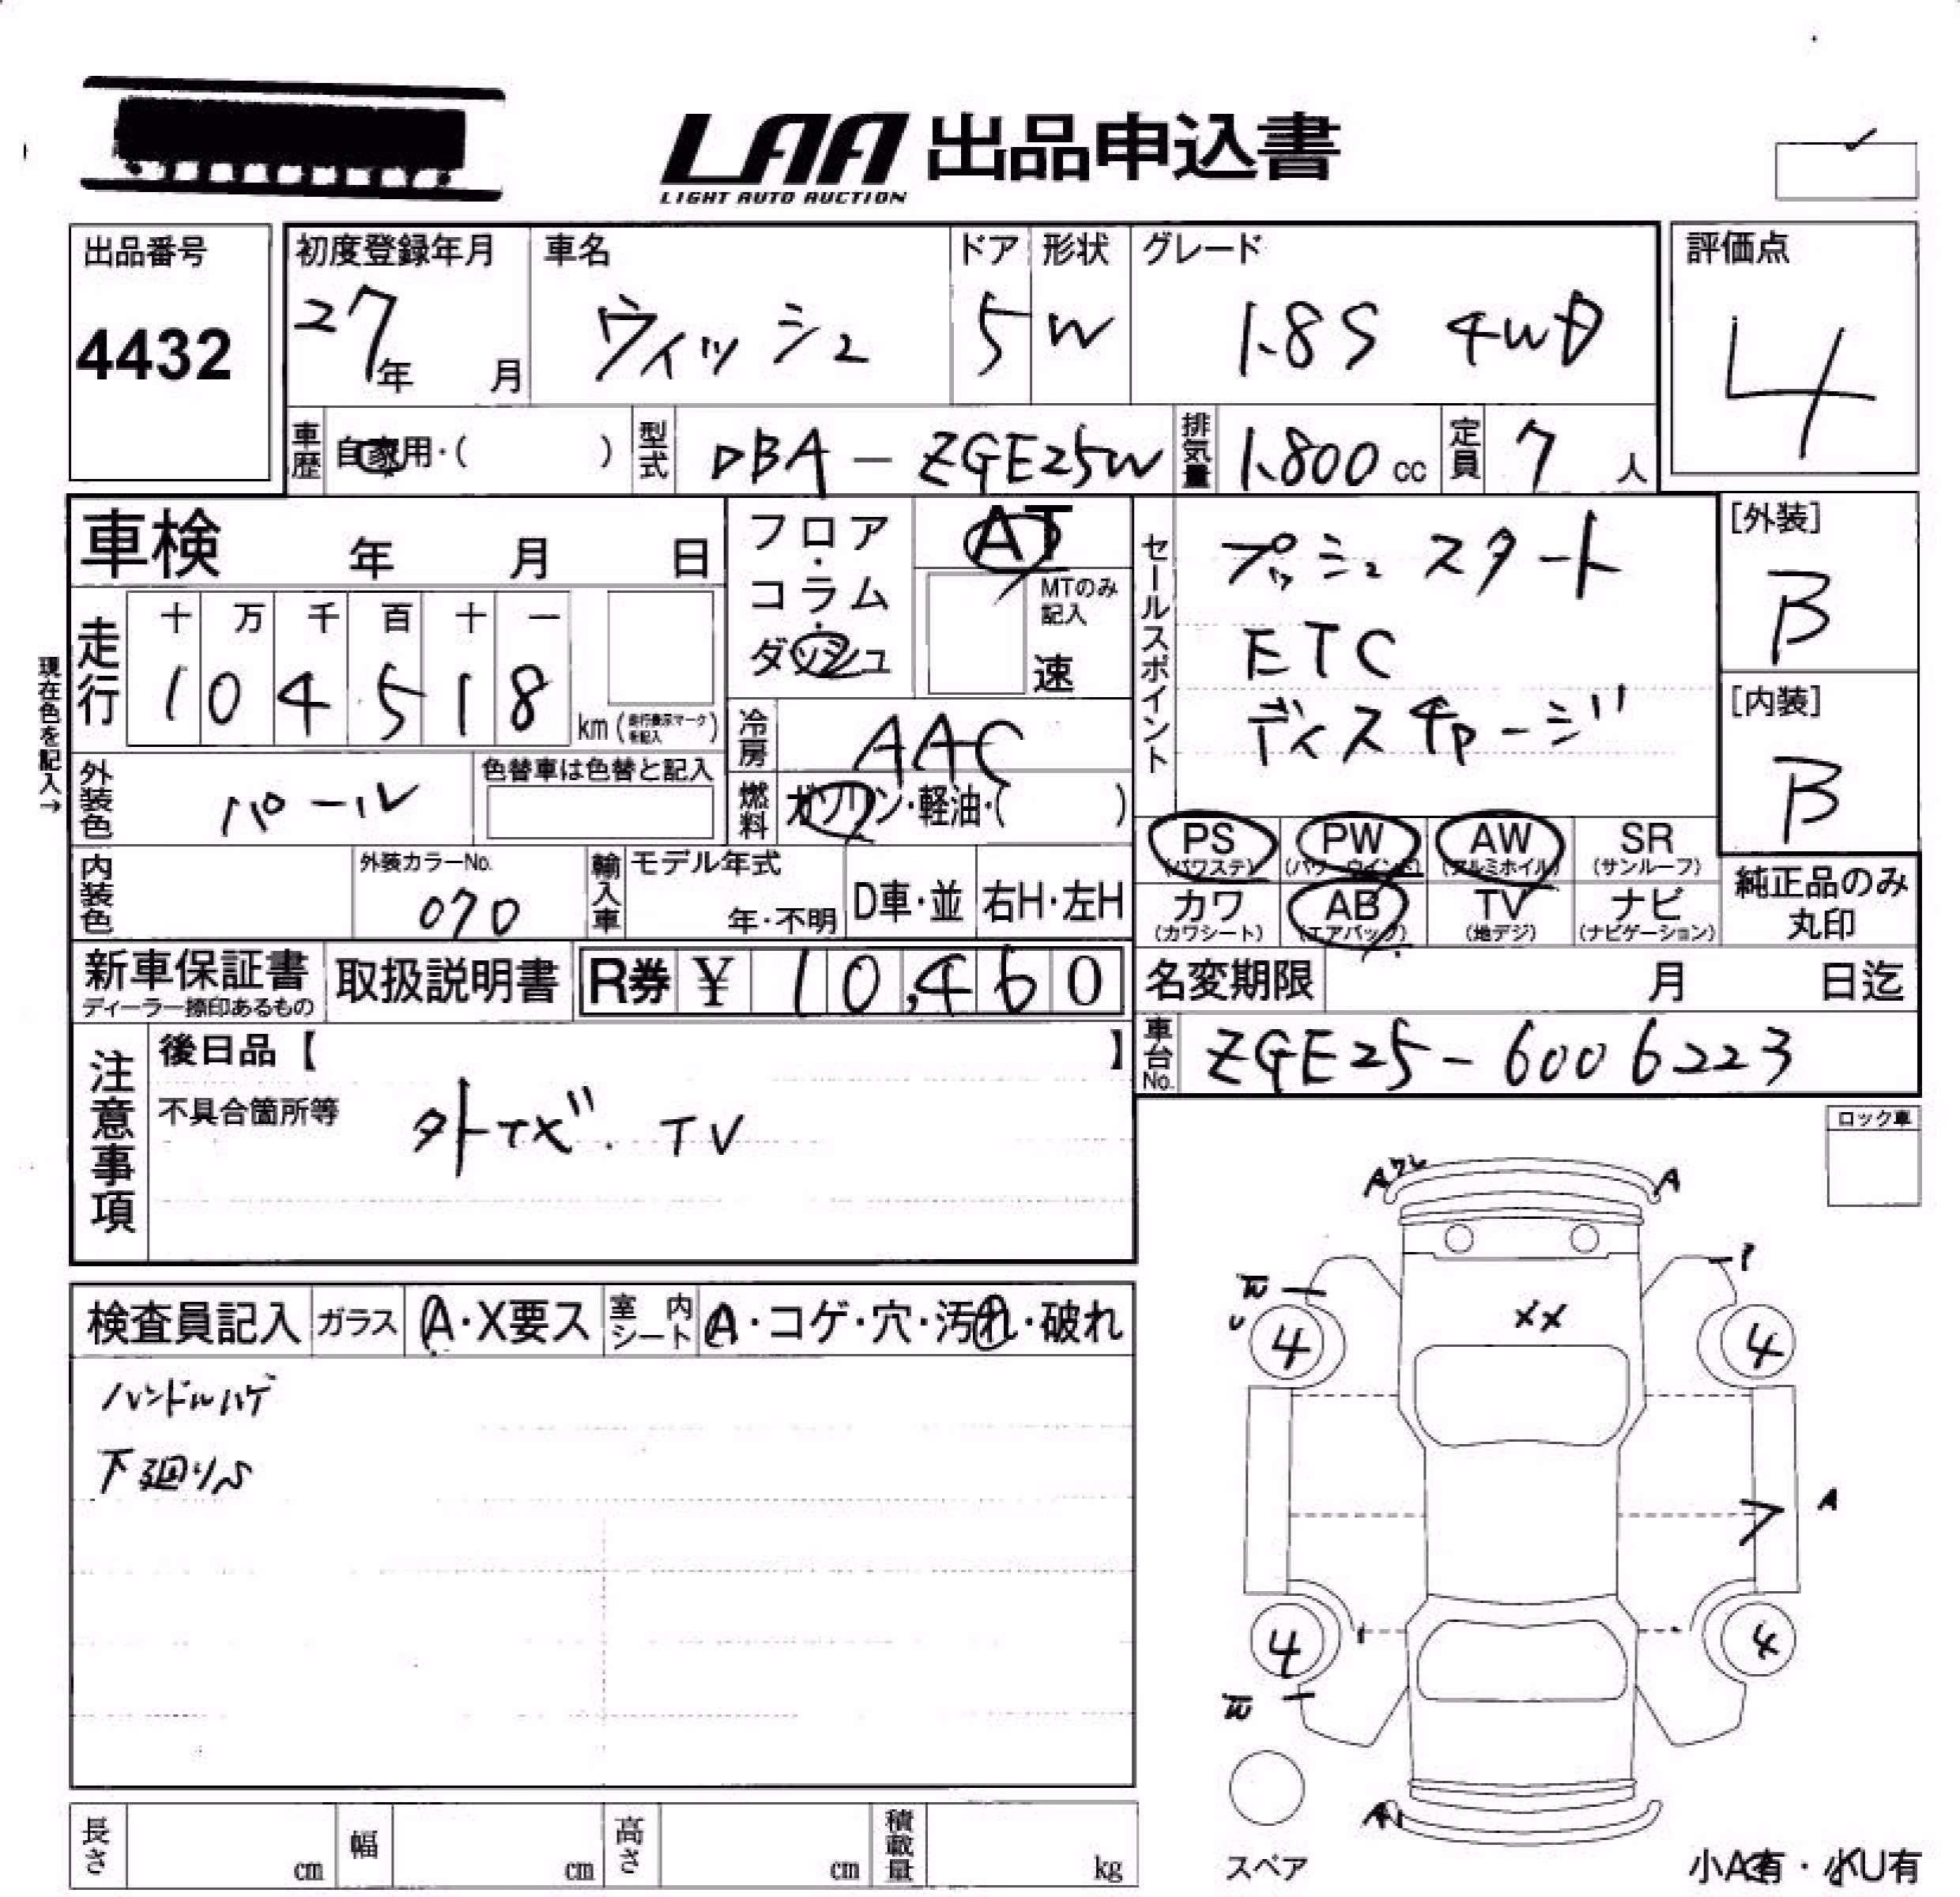 LAA 出品申込書
LIGHT AUTO AUCTION
出品番号
4432
初度登録年月
27年 月
車名
ウィッシュ
ドア
5
形状
W
グレード
1.8S 4WD
評価点
4
車歴
自家用・( )
型式
DBA-ZGE25W
排気量
1.800cc
定員
7人
車検 年 月 日
フロア・コラム・ダッシュ
AT
MTのみ記入
速
セールスポイント
プッシュスタート
ETC
ディスチャージ
[外装]
B
[内装]
B
現在色を記入→
走行
十 万 千 百 十 一
1 0 4 5 1 8
km(走行表示マークを記入)
冷房
AAC
外装色
パール
色替車は色替と記入
燃料
ガソリン・軽油・( )
PS (パワステ)
PW (パワーウインド)
AW (アルミホイル)
SR (サンルーフ)
カワ (カワシート)
AB (エアバッグ)
TV (地デジ)
ナビ (ナビゲーション)
純正品のみ丸印
内装色
外装カラーNo.
070
輸入車
モデル年式
年・不明
D車・並
右H・左H
新車保証書
ディーラー捺印あるもの
取扱説明書
R券 ¥ 10,460
名変期限 月 日迄
車台No.
ZGE25-6006223
注意事項
後日品【 】
不具合箇所等
外ナビ. TV
ロック車
検査員記入
ガラス
A・X要ス
室内シート
A・コゲ・穴・汚れ・破れ
ハンドルハゲ
下廻りS
Aワレ
A
XX
4
4
A
4
4
A
スペア
長さ cm
幅 cm
高さ cm
積載量 kg
小A有・小U有